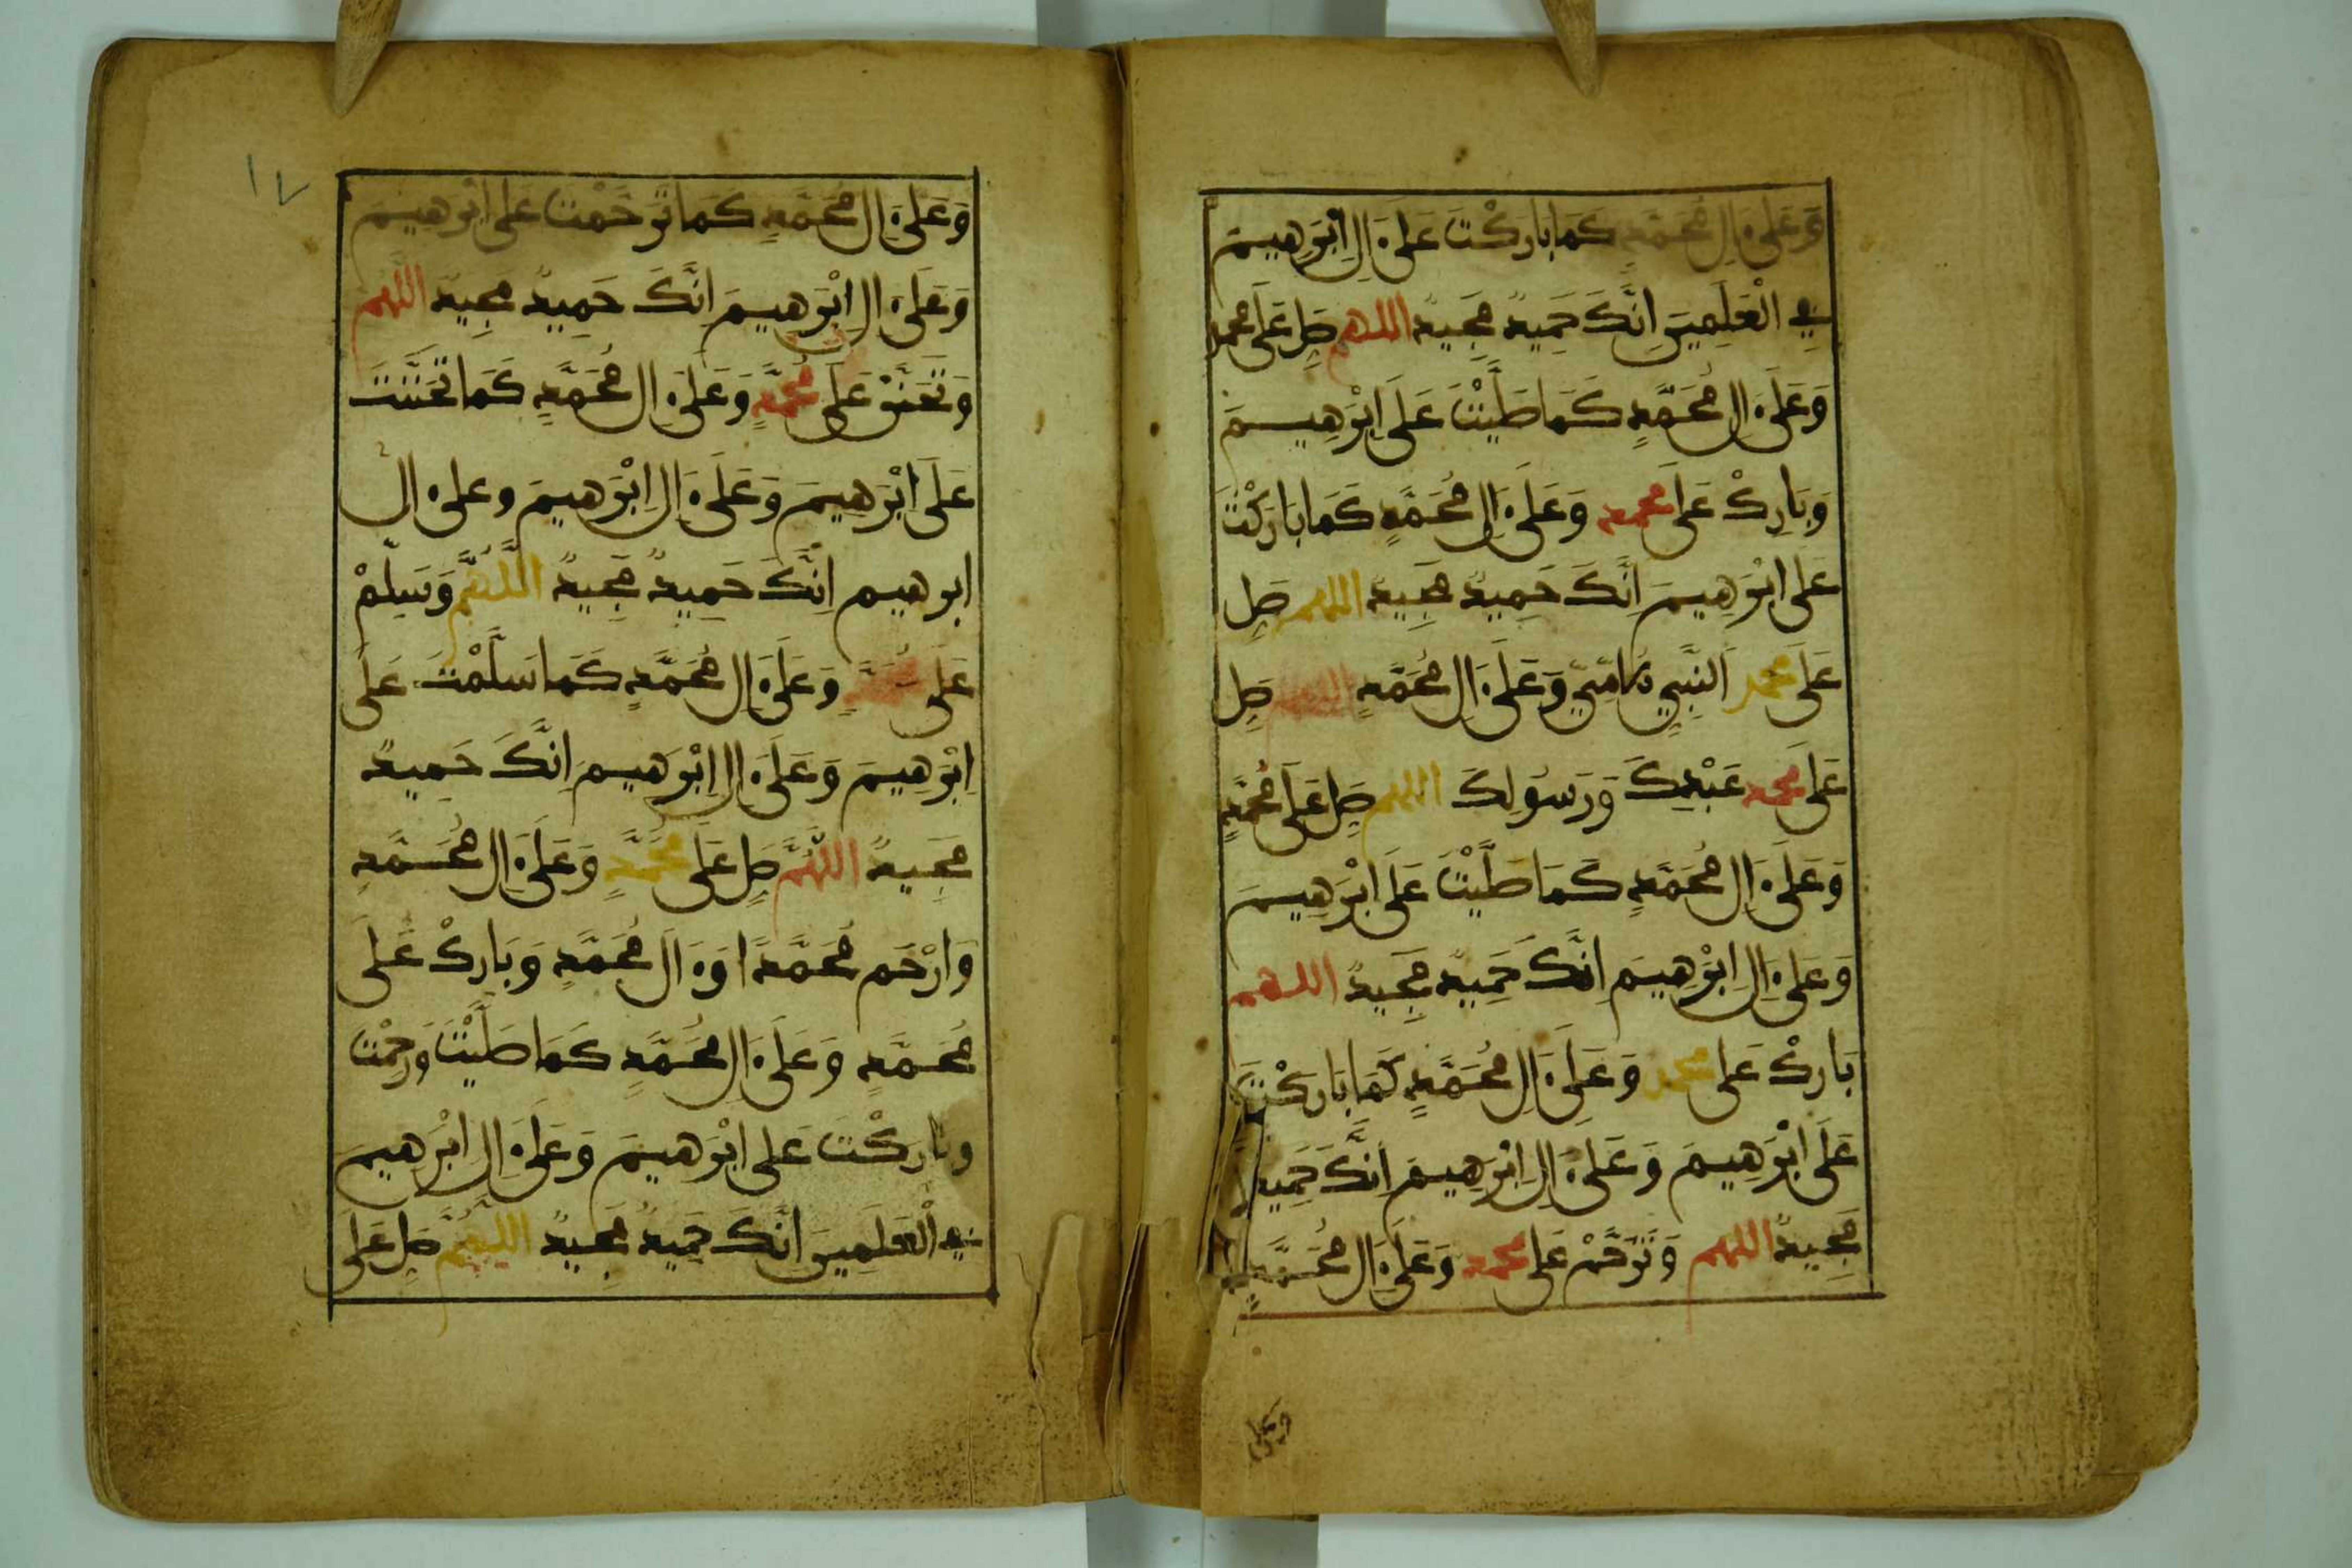 وَعَلَىٰٓ ءَالِ مُحَمَّدٍ كَمَا بَارَكْتَ عَلَىٰٓ ءَالِ إِبْرَهِيمَ
فِي الْعَلَمِينَ إِنَّكَ حَمِيدٌ مَجِيدٌ اللهم صَلِّ عَلَى محمد
وَعَلَىٰٓ ءَالِ مُحَمَّدٍ كَمَا صَلَّيْتَ عَلَى إِبْرَهِيمَ
وَبَارِكْ عَلَى محمد وَعَلَىٰٓ ءَالِ مُحَمَّدٍ كَمَا بَارَكْتَ
عَلَى إِبْرَهِيمَ إِنَّكَ حَمِيدٌ مَجِيدٌ اللهم صَلِّ
عَلَى محمد النَّبِيِّ الأُمِّيِّ وَعَلَىٰٓ ءَالِ مُحَمَّدٍ اللهم صَلِّ
عَلَى محمد عَبْدِكَ وَرَسُولِكَ اللهم صَلِّ عَلَى مُحَمَّدٍ
وَعَلَىٰٓ ءَالِ مُحَمَّدٍ كَمَا صَلَّيْتَ عَلَى إِبْرَهِيمَ
وَعَلَىٰٓ ءَالِ إِبْرَهِيمَ إِنَّكَ حَمِيدٌ مَجِيدٌ اللهم
بَارِكْ عَلَى محمد وَعَلَىٰٓ ءَالِ مُحَمَّدٍ كَمَا بَارَكْتَ
عَلَى إِبْرَهِيمَ وَعَلَىٰٓ ءَالِ إِبْرَهِيمَ إِنَّكَ حَمِيدٌ
مَجِيدٌ اللهم وَتَرَحَّمْ عَلَى محمد وَعَلَىٰٓ ءَالِ مُحَمَّدٍ
وعلى
١٧
وَعَلَىٰٓ ءَالِ مُحَمَّدٍ كَمَا تَرَحَّمْتَ عَلَى إِبْرَهِيمَ
وَعَلَىٰٓ ءَالِ إِبْرَهِيمَ إِنَّكَ حَمِيدٌ مَجِيدٌ اللهم
وَتَحَنَّنْ عَلَى مُحَمَّدٍ وَعَلَىٰٓ ءَالِ مُحَمَّدٍ كَمَا تَحَنَّنْتَ
عَلَى إِبْرَهِيمَ وَعَلَىٰٓ ءَالِ إِبْرَهِيمَ وعلى ءال
ابرهيم إِنَّكَ حَمِيدٌ مَجِيدٌ اللَّهُمَّ وَسَلِّمْ
عَلَى مُحَمَّدٍ وَعَلَىٰٓ ءَالِ مُحَمَّدٍ كَمَا سَلَّمْتَ عَلَى
إِبْرَهِيمَ وَعَلَىٰٓ ءَالِ إِبْرَهِيمَ إِنَّكَ حَمِيدٌ
مَجِيدٌ اللَّهُمَّ صَلِّ عَلَى مُحَمَّدٍ وَعَلَىٰٓ ءَالِ مُحَمَّدٍ
وَارْحَم مُحَمَّدًا وَءَالَ مُحَمَّدٍ وَبَارِكْ عَلَى
مُحَمَّدٍ وَعَلَىٰٓ ءَالِ مُحَمَّدٍ كَمَا صَلَّيْتَ وَرَحِمْتَ
وباركْتَ عَلَى إِبْرَهِيمَ وَعَلَىٰٓ ءَالِ إِبْرَهِيمَ
فِي الْعَلَمِينَ إِنَّكَ حَمِيدٌ مَجِيدٌ اللَّهُمَّ صَلِّ عَلَى